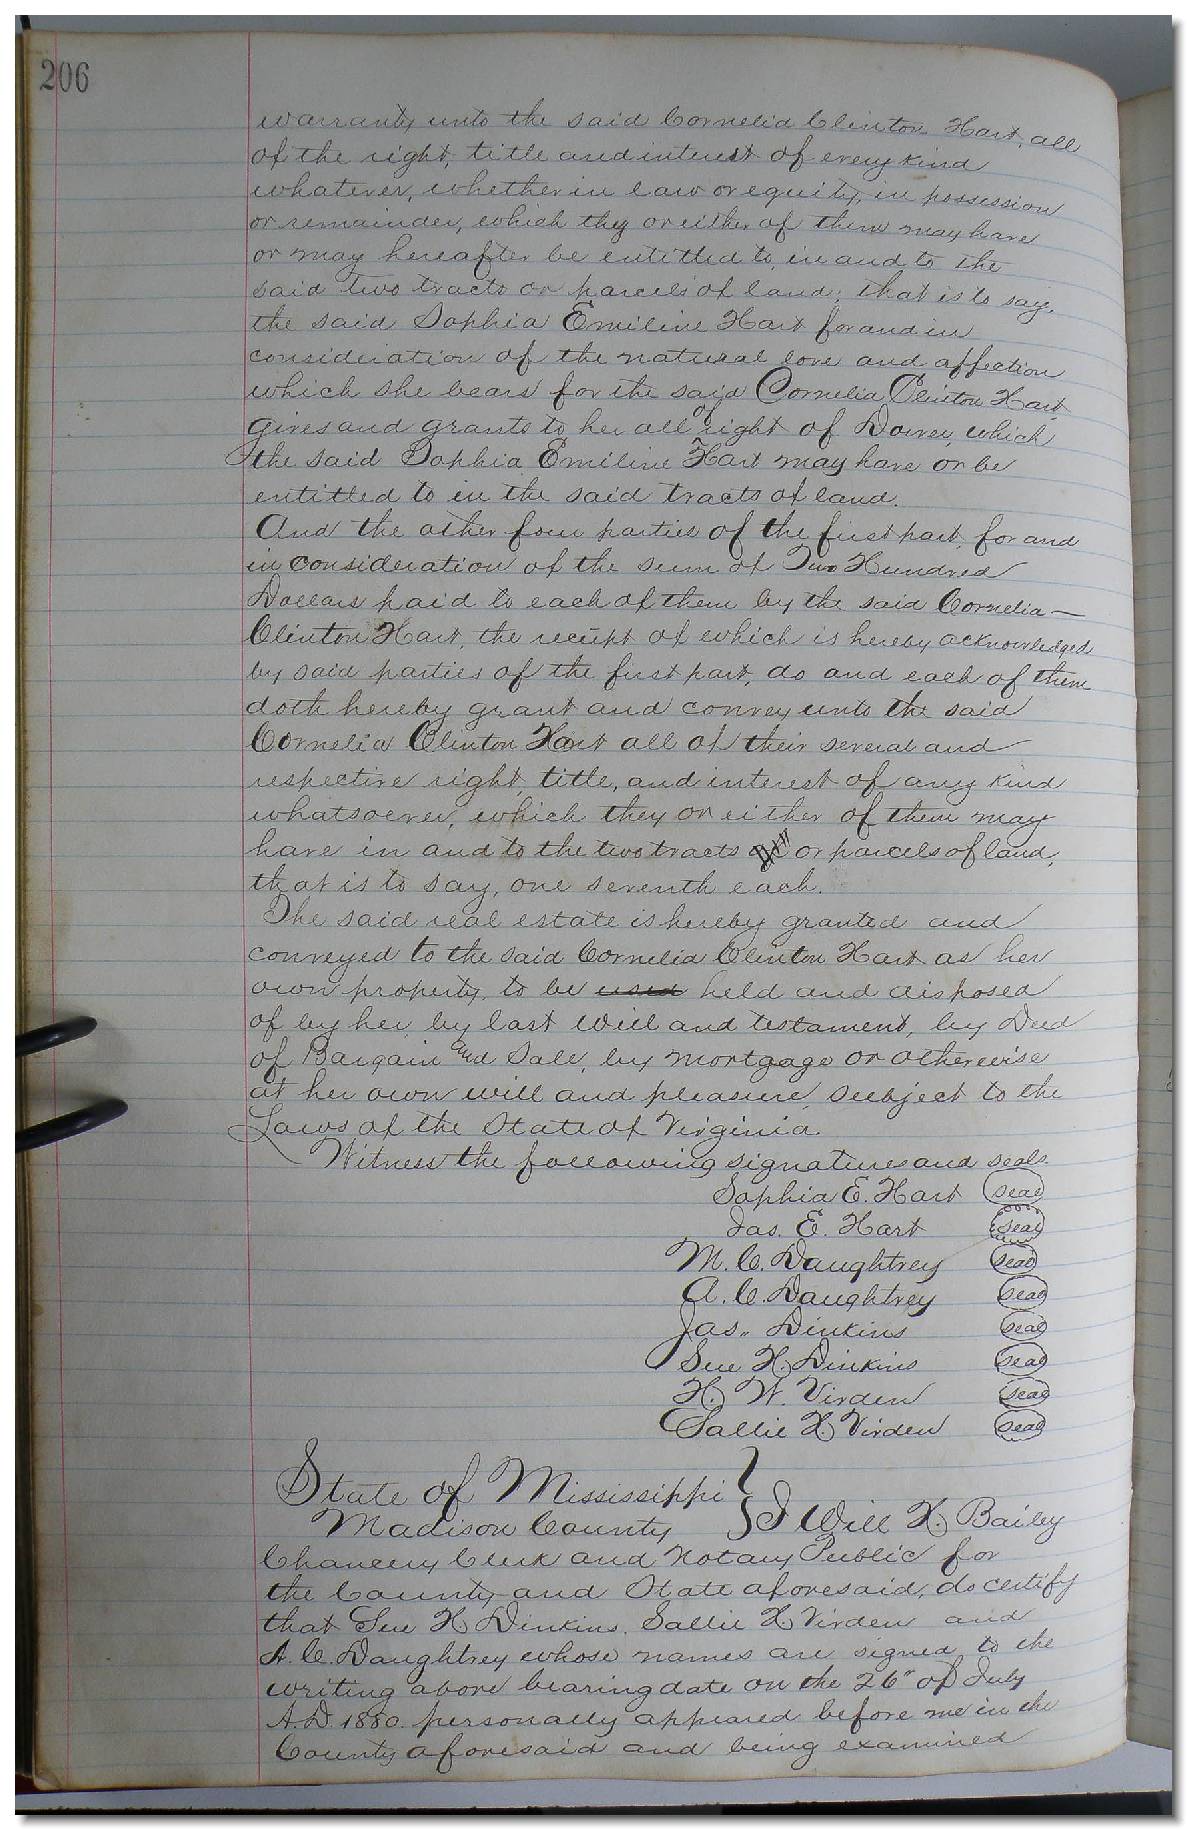 206
warranty unto the said Cornelia Clinton Hart, all
of the right, title and interest of every kind
whatever, whether in law or equity, in possession
or remainder, which they or either of them may have
or may hereafter be entitled to, in and to the
said two tracts or parcels of land; that is to say,
the said Sophia Emiline Hart for and in
consideration of the natural love and affection
which she bears for the said Cornelia Clinton Hart
gives and grants to her all of right of Dower, which
the said Sophia Emiline Hart may have or be
entitled to in the said tracts of land.
And the other four parties of the first part, for and
in consideration of the sum of Two Hundred
Dollars paid to each of them by the said Cornelia —
Clinton Hart, the receipt of which is hereby acknowledged
by said parties of the first part, do and each of them
doth hereby grant and convey unto the said
Cornelia Clinton Hart all of their several and
respective right, title, and interest of any kind
whatsoever, which they or either of them may
have in and to the two tracts or parcels of land,
that is to say, one seventh each.
The said real estate is hereby granted and
conveyed to the said Cornelia Clinton Hart as her
own property, to be used held and disposed
of by her, by last will and testament, by Deed
of Bargain and Sale, by mortgage or otherwise
at her own will and pleasure, subject to the
Laws of the State of Virginia.
Witness the following signatures and seals.
Sophia E. Hart seal
Jas. E. Hart seal
M. C. Daughtrey seal
A. C. Daughtrey seal
Jas. Dinkins seal
Sue H. Dinkins seal
H. W. Virden seal
Sallie H. Virden seal
State of Mississippi }
Madison County } I Will H. Bailey
Chancery Clerk and Notary Public for
the County and State aforesaid, do certify
that Sue H Dinkins, Sallie H Virden and
A. C. Daughtrey whose names are signed to the
writing above bearing date on the 26" of July
A.D. 1880. personally appeared before me in the
County aforesaid and being examined